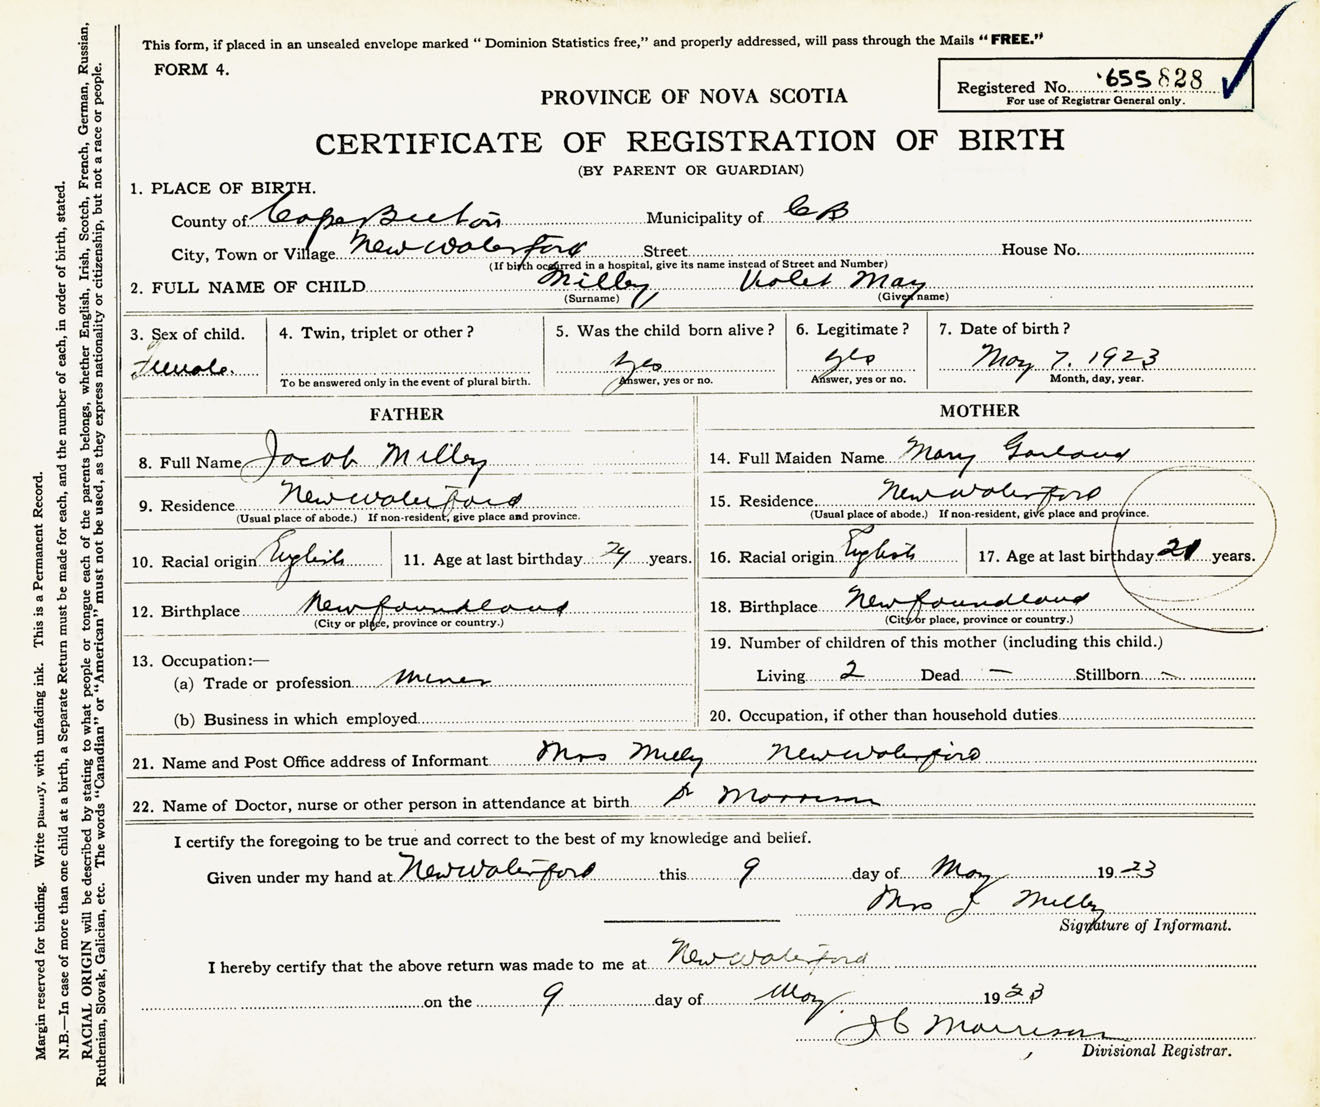 This form, if placed in an unsealed envelope marked " Dominion Statistics free," and properly addressed, will pass through the Mails "FREE."
FORM 4.
Registered No. 655828
For use of Registrar General only.
PROVINCE OF NOVA SCOTIA
CERTIFICATE OF REGISTRATION OF BIRTH
(BY PARENT OR GUARDIAN)
1. PLACE OF BIRTH.
County of Cape Breton Municipality of CB
City, Town or Village New Waterford Street House No.
(If birth occurred in a hospital, give its name instead of Street and Number)
2. FULL NAME OF CHILD Milley Violet May
(Surname) (Given name)
3. Sex of child. 4. Twin, triplet or other? 5. Was the child born alive? 6. Legitimate? 7. Date of birth?
Female. yes yes May 7. 1923
To be answered only in the event of plural birth. Answer, yes or no. Answer, yes or no. Month, day, year.
FATHER MOTHER
8. Full Name Jacob Milley 14. Full Maiden Name Mary Garland
9. Residence New Waterford 15. Residence New Waterford
(Usual place of abode.) If non-resident, give place and province. (Usual place of abode.) If non-resident, give place and province.
10. Racial origin English 11. Age at last birthday 24 years. 16. Racial origin English 17. Age at last birthday years.
12. Birthplace Newfoundland 18. Birthplace Newfoundland
(City or place, province or country.) (City or place, province or country.)
13. Occupation:— 19. Number of children of this mother (including this child.)
(a) Trade or profession miner Living 2 Dead — Stillborn —
(b) Business in which employed 20. Occupation, if other than household duties
21. Name and Post Office address of Informant Mrs Milley New Waterford
22. Name of Doctor, nurse or other person in attendance at birth Dr Morrison
I certify the foregoing to be true and correct to the best of my knowledge and belief.
Given under my hand at New Waterford this 9 day of May 1923
Mrs J Milley
Signature of Informant.
I hereby certify that the above return was made to me at New Waterford
on the 9 day of May 1923
J C Morrison
Divisional Registrar.
Margin reserved for binding. Write plainly, with unfading ink. This is a Permanent Record.
N.B.—In case of more than one child at a birth, a Separate Return must be made for each, and the number of each, in order of birth, stated.
RACIAL ORIGIN will be described by stating to what people or tongue each of the parents belongs, whether English, Irish, Scotch, French, German, Russian,
Ruthenian, Slovak, Galician, etc. The words "Canadian" or "American" must not be used, as they express nationality or citizenship, but not a race or people.